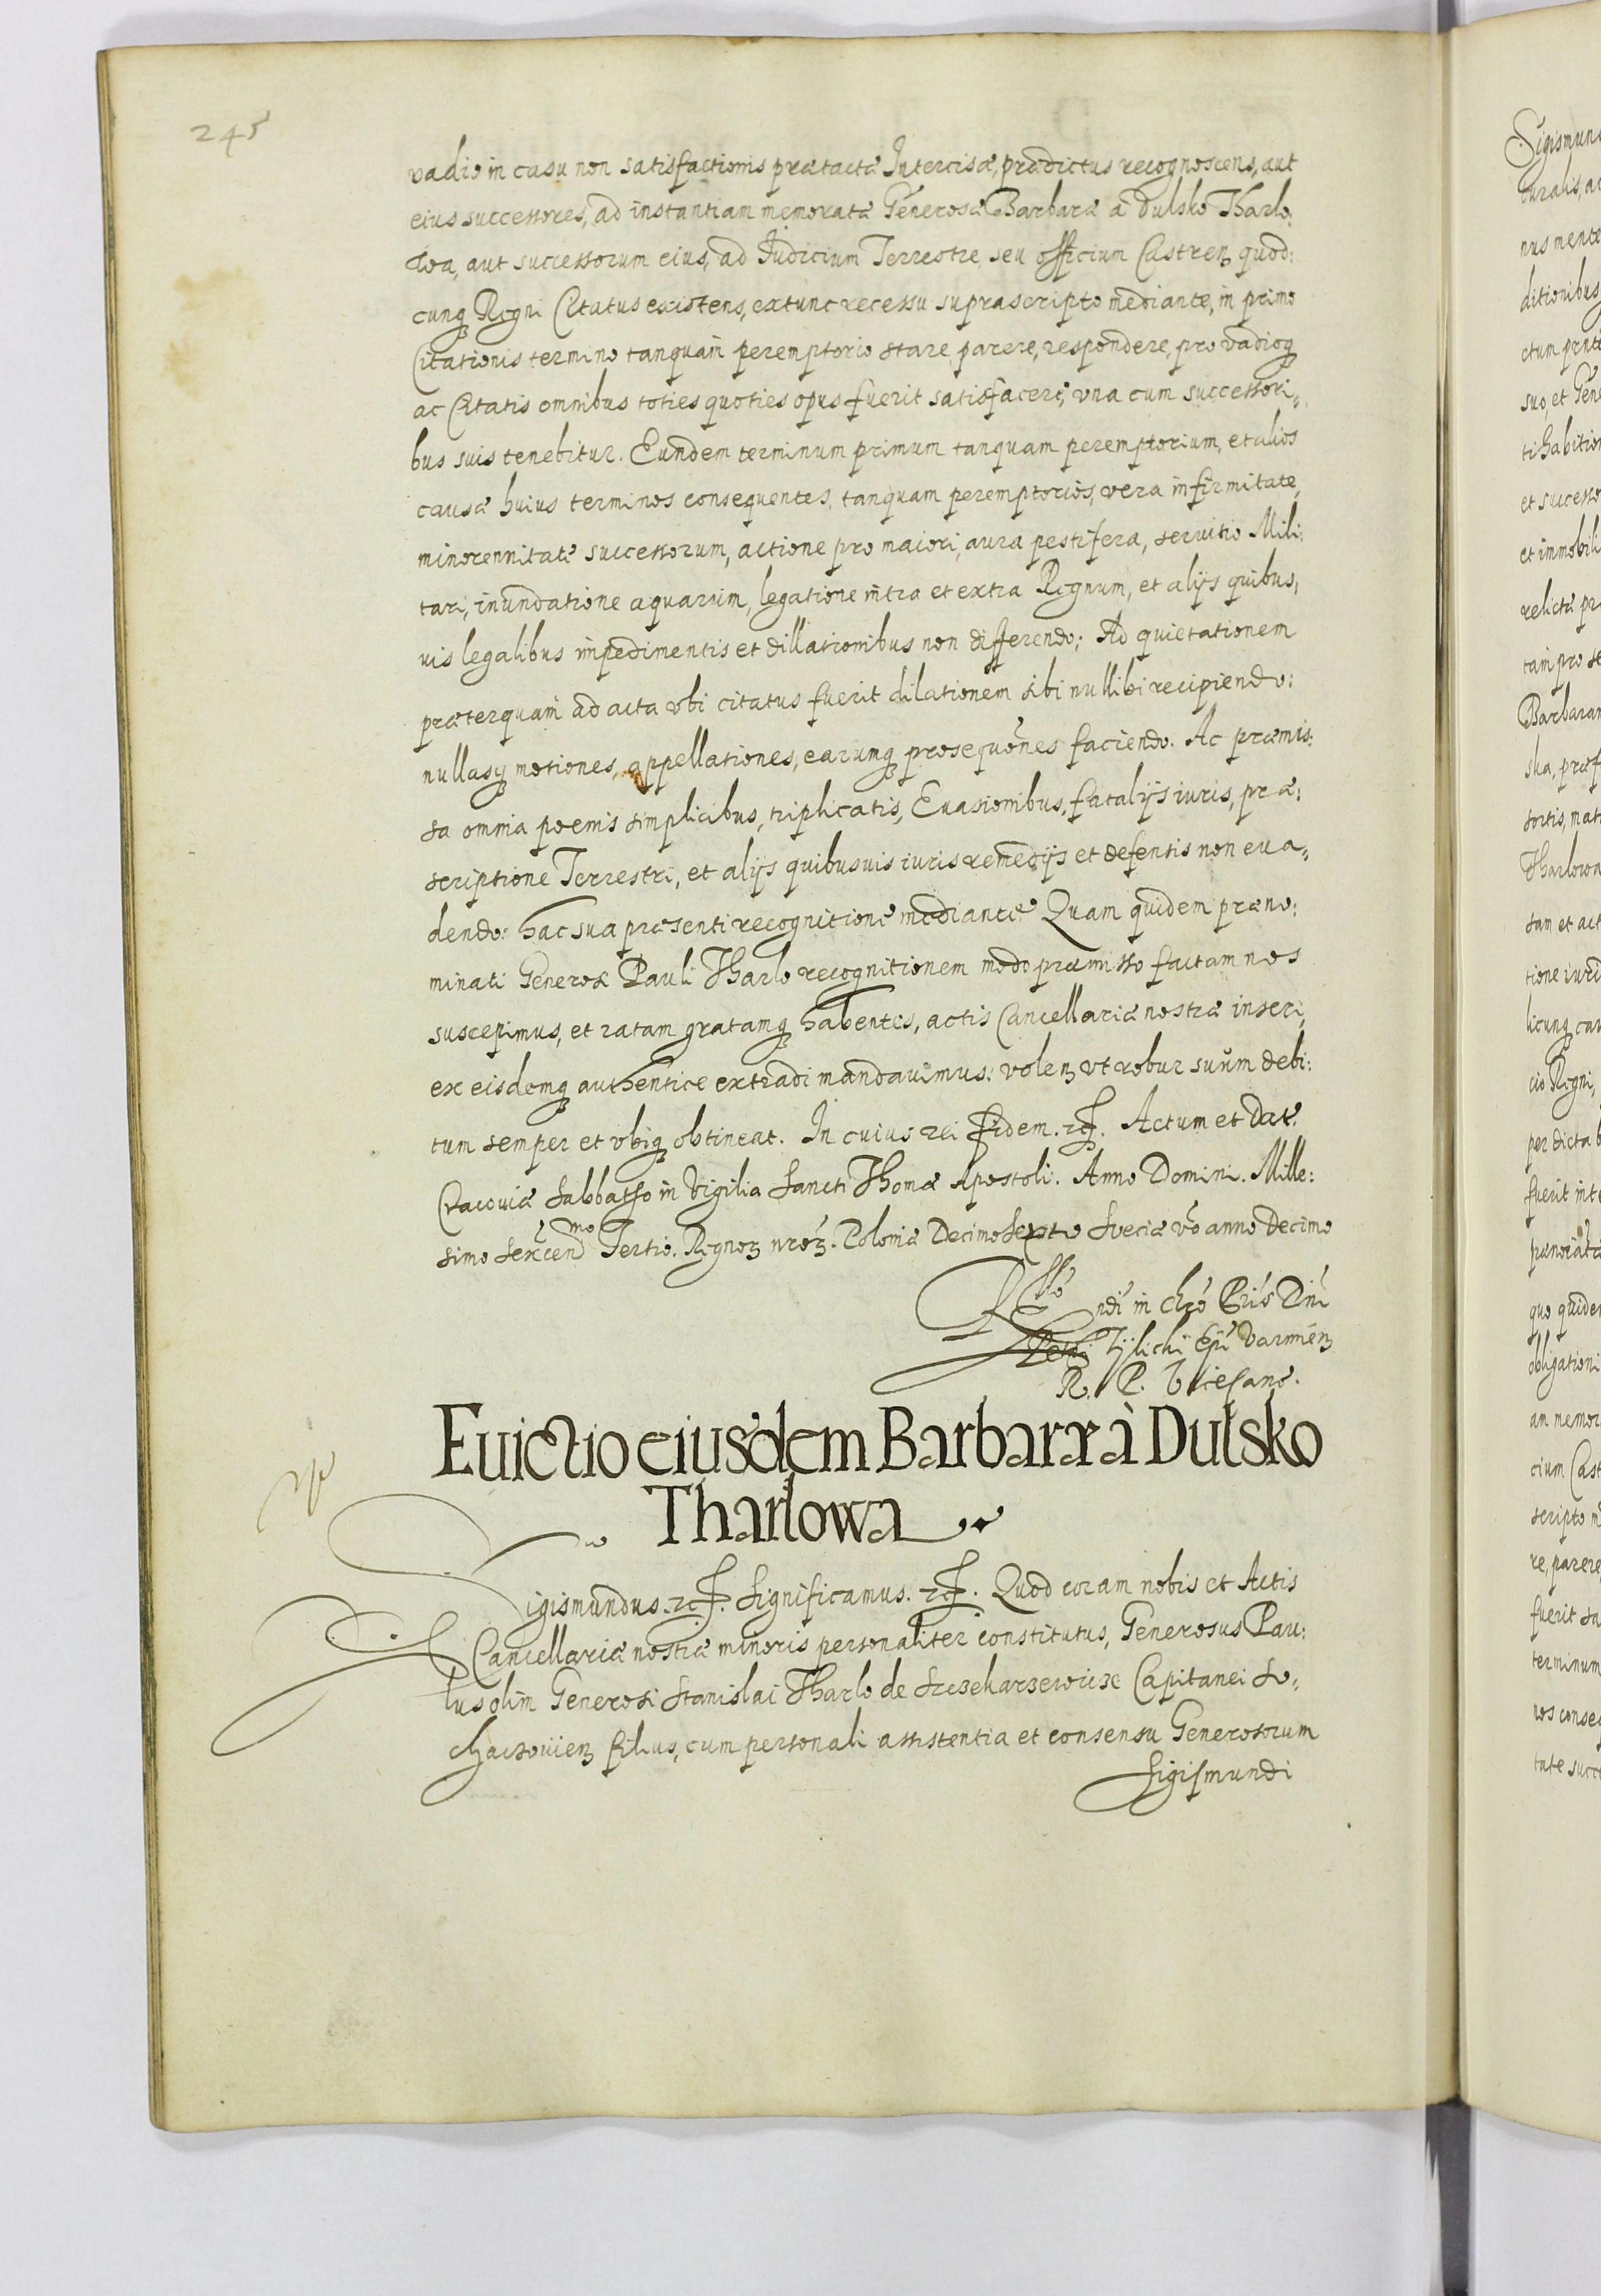 245
vadio in casu non satisfactionis prætactæ Intercisæ, prædictus recognoscens, aut
eius successores, ad instantiam memoratæ Generosæ Barbaræ a Dulsko Tharlo,
wa, aut successorum eius, ad Iudicium Terrestre seu officium Castren quod:
cunq Regni Citatus existens, extunc recessu suprascripto mediante, in primo
Citationis termino tanquam peremptorio stare, parere, respondere, pro vadioq
ac Citatis omnibus toties quoties opus fuerit satisfacere, vna cum successori,,
bus suis tenebitur. Eundem terminum primum tanquam peremptorium, et alios
causæ huius terminos consequentes, tanquam peremptorios, vera infirmitate,
minorennitate successorum, actione pro maiori, aura pestifera, servitio Mili:
tari, inundatione aquarum, legatione intra et extra Regnum, et alijs quibus,
uis legalibus impedimentis et dillationibus non differendo; Ad quietationem
præterquam ad acta vbi citatus fuerit dilationem sibi nullibi recipiendo:
nullasq motiones, appellationes, earumq prosequōnes faciendo. Ac præmis:
sa omnia poenis simplicibus, triplicatis, Euasionibus, fatalijs iuris, præ:
scriptione Terrestri, et alijs quibusuis iuris remedijs et defensis non eua,,
dendo: hac sua præsenti recognitione mediante Quam quidem præno:
minati Generosi Pauli Tharlo recognitionem modo præmisso factam nos
suscepimus, et ratam gratamq habentes, actis Cancellariæ nostræ inseri,
ex eisdemq authentice extradi mandauimus: volen vt robur suum debi:
tum semper et vbiq obtineat. In cuius rei fidem. rc. Actum et Dat.
Cracoviæ Sabbatho in Vigilia Sancti Thomæ Apostoli. Anno Domini. Mille:
simo Sexcen.mo Tertio. Regnor nror. Poloniæ Decimo Septo Sveciæ vo anno Decimo
Rsso ndi in Chro Pris Dni
Petri Tijlicki Epi Varmien
R. P. Vicecanc.
Euictio eiusdem Barbaræ à Dulsko
Tharlowa
Sigismundus. rc. Significamus. rc. Quod coram nobis et Actis
Cancellariæ nostræ minoris personaliter constitutus, Generosus Pau:
lus olim Generosi Stanislai Tharlo de Szczekarzewicze Capitanei So,
chaczouien filius, cum personali assistentia et consensu Generosorum
Sigismundi